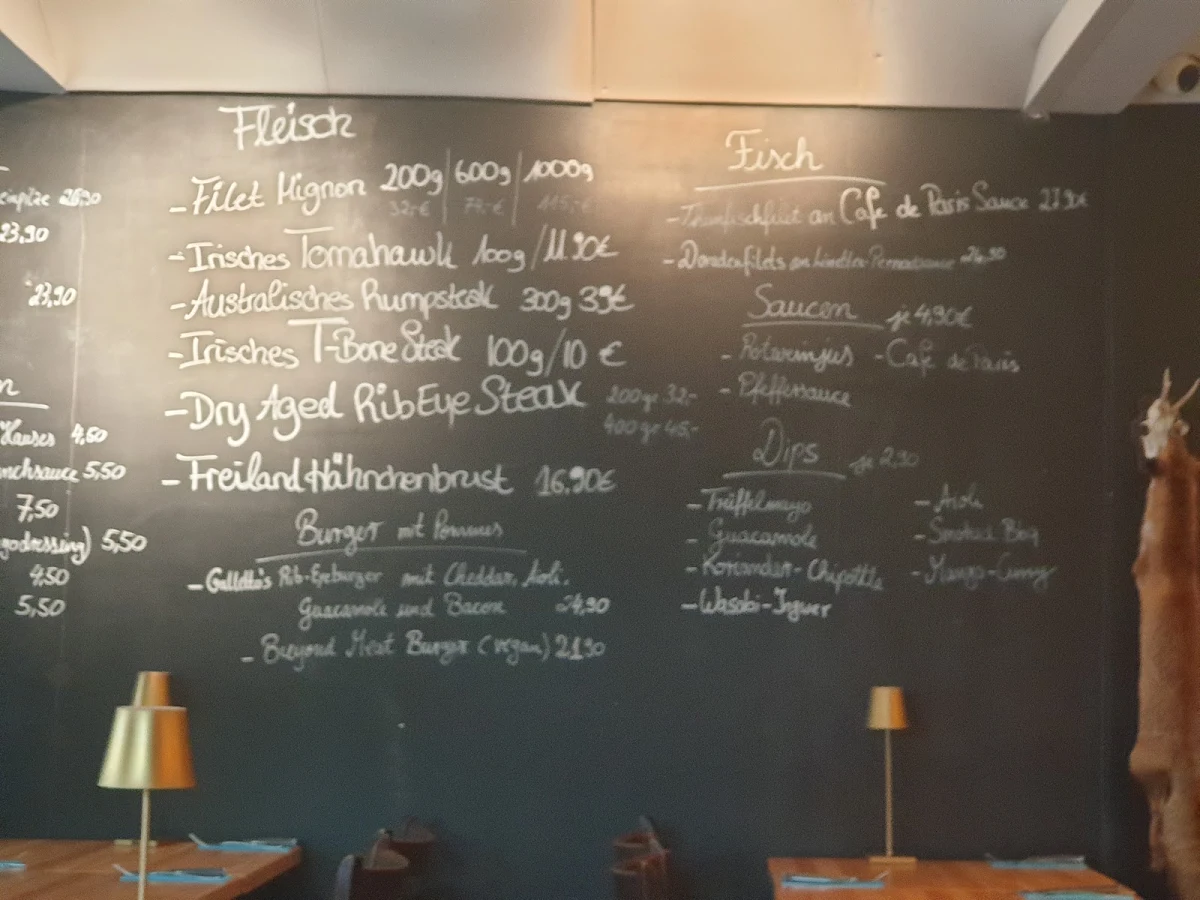 26,90
23,90
23,90
n
Hauses 4,50
nchsauce 5,50
7,50
godressing) 5,50
4,50
5,50
Fleisch
- Filet Mignon 200g | 600g | 1000g
32,-€
- Irisches Tomahawk 100g / 11.90€
- Australisches Rumpsteak 300g 39€
- Irisches T-Bone Steak 100g / 10 €
- Dry Aged RibEye Steak 200gr 32,-
400gr 45,-
- Freiland Hähnchenbrust 16,90€
Burger mit Pommes
- Rib-Eyeburger mit Cheddar, Aioli,
Guacamole und Bacon 24,90
- Beyond Meat Burger (vegan) 21,90
Fisch
- Thunfischfilet an Cafe de Paris Sauce
- Doradenfilets an 24,90
Saucen je 4,90€
- Rotweinjus - Cafe de Paris
- Pfeffersauce
Dips je 2,90
- Trüffelmayo - Aioli
- Guacamole - Smoked BBQ
- Koriander-Chipottle - Mango-Curry
- Wasabi-Ingwer